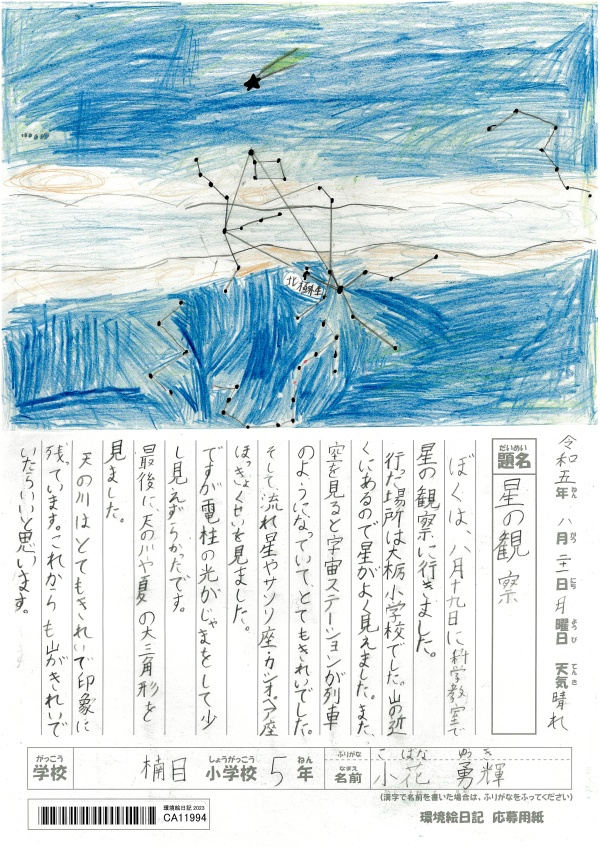 北極星
令和五年 八月 二十一日 月曜日 天気 晴れ
ねん がつ にち ようび てんき
だいめい
題名
星の観察
ぼくは、八月十九日に科学教室で
星の観察に行きました。
行った場所は大栃小学校でした。山の近
くにあるので星がよく見えました。また、
空を見ると宇宙ステーションが列車
のようになっていて、とてもきれいでした。
そして、流れ星やサソリ座・カシオペア座
ほっきょくせいを見ました。
ですが電柱の光がじゃまをして少
し見えずらかったです。
最後に天の川や夏の大三角形を
見ました。
天の川はとてもきれいで印象に
残っています。これからも山がきれいで
いたらいいと思います。
がっこう しょうがっこう ねん
学校 楠目 小学校 5年
ふりがな こはな ゆうき
なまえ
名前 小花 勇輝
(漢字で名前を書いた場合は、ふりがなをふってください)
環境絵日記 2023
CA11994
環境絵日記 応募用紙